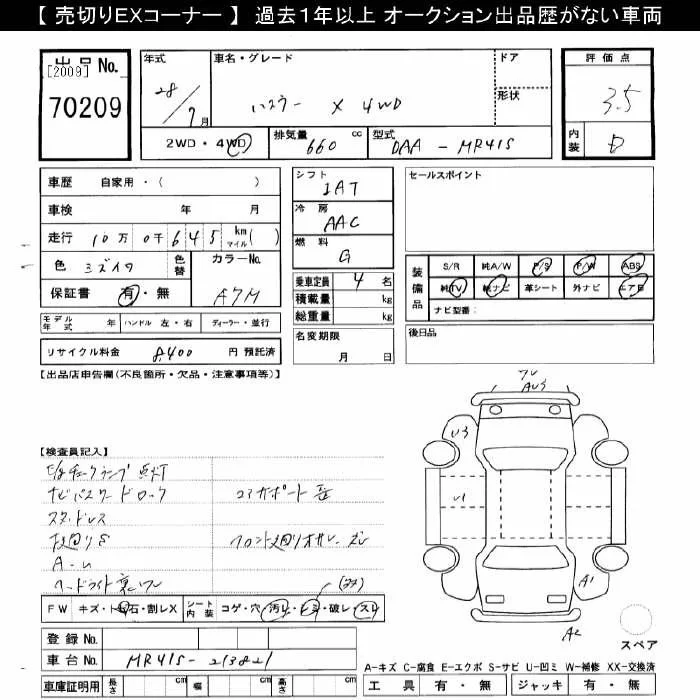 【 売切りEXコーナー 】 過去１年以上 オークション出品歴がない車両
出品 No.
[2009]
70209
年式
28/7月
車名・グレード
ハスラー X 4WD
ドア
形状
評価点
3.5
内装 D
2WD・4WD
排気量 660 cc
型式 DAA - MR41S
車歴 自家用・( )
車検 年 月
走行 10万0千645 km マイル( )
色 ミズイロ
色替
カラーNo. A7M
保証書 有・無
モデル年式 年
ハンドル 左・右
ディーラー・並行
リサイクル料金 8,400 円 預託済
シフト
IAT
冷房
AAC
燃料
G
乗車定員 4 名
積載量 kg
総重量 kg
名変期限
月 日
セールスポイント
装備品
S/R 純A/W P/S P/W ABS
純TV 純ナビ 革シート 外ナビ エアB
ナビ型番:
後日品
【出品店申告欄(不良箇所・欠品・注意事項等)】
【検査員記入】
ナビパスワードロック
スタッドレス
コアサポート
FW キズ・ト石・割レX
シート内装 コゲ・穴 汚レ・シミ・破レ・スレ
登録 No.
車台 No. MR41S-213821
車庫証明用 長さ cm 幅 cm 高さ cm
U3
U1
A1
A2
スペア
A-キズ C-腐食 E-エクボ S-サビ U-凹ミ W-補修 XX-交換済
工具 有・無 ジャッキ 有・無